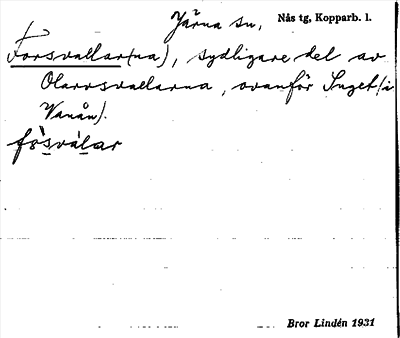 Järna sn. Nås tg, Kopparb. l.
Forsvallar(na), sydligare del av
Olarsvallarna, ovanför Inget (i
Vanån).
fò̱svàlar
Bror Lindén 1931